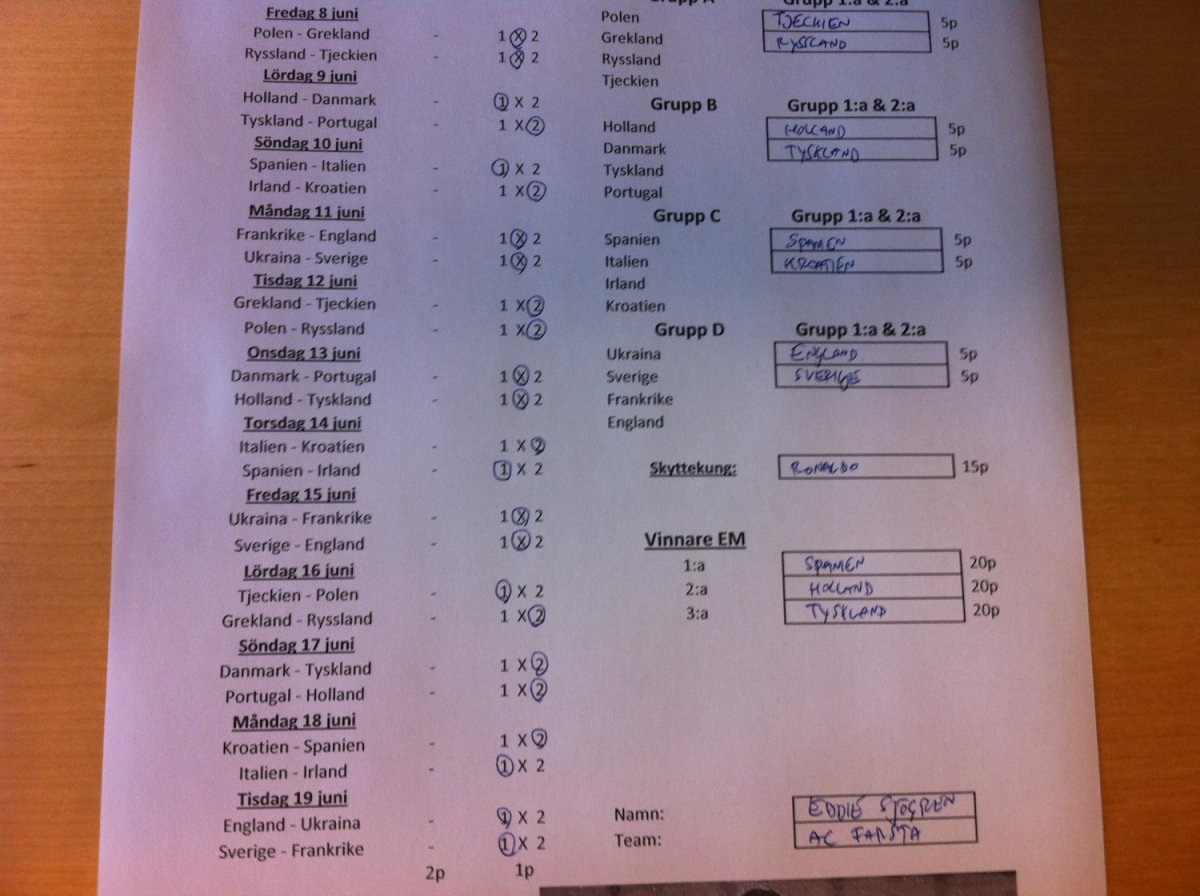 Fredag 8 juni
Polen - Grekland - 1 X 2
Ryssland - Tjeckien - 1 X 2
Lördag 9 juni
Holland - Danmark - 1 X 2
Tyskland - Portugal - 1 X 2
Söndag 10 juni
Spanien - Italien - 1 X 2
Irland - Kroatien - 1 X 2
Måndag 11 juni
Frankrike - England - 1 X 2
Ukraina - Sverige - 1 X 2
Tisdag 12 juni
Grekland - Tjeckien - 1 X 2
Polen - Ryssland - 1 X 2
Onsdag 13 juni
Danmark - Portugal - 1 X 2
Holland - Tyskland - 1 X 2
Torsdag 14 juni
Italien - Kroatien - 1 X 2
Spanien - Irland - 1 X 2
Fredag 15 juni
Ukraina - Frankrike - 1 X 2
Sverige - England - 1 X 2
Lördag 16 juni
Tjeckien - Polen - 1 X 2
Grekland - Ryssland - 1 X 2
Söndag 17 juni
Danmark - Tyskland - 1 X 2
Portugal - Holland - 1 X 2
Måndag 18 juni
Kroatien - Spanien - 1 X 2
Italien - Irland - 1 X 2
Tisdag 19 juni
England - Ukraina - 1 X 2
Sverige - Frankrike - 1 X 2
2p 1p
Grupp A Grupp 1:a & 2:a
Polen TJECKIEN 5p
Grekland RYSSLAND 5p
Ryssland
Tjeckien
Grupp B Grupp 1:a & 2:a
Holland HOLLAND 5p
Danmark TYSKLAND 5p
Tyskland
Portugal
Grupp C Grupp 1:a & 2:a
Spanien SPANIEN 5p
Italien KROATIEN 5p
Irland
Kroatien
Grupp D Grupp 1:a & 2:a
Ukraina ENGLAND 5p
Sverige SVERIGE 5p
Frankrike
England
Skyttekung: RONALDO 15p
Vinnare EM
1:a SPANIEN 20p
2:a HOLLAND 20p
3:a TYSKLAND 20p
Namn: EDDIE SJÖGREN
Team: AC FARSTA